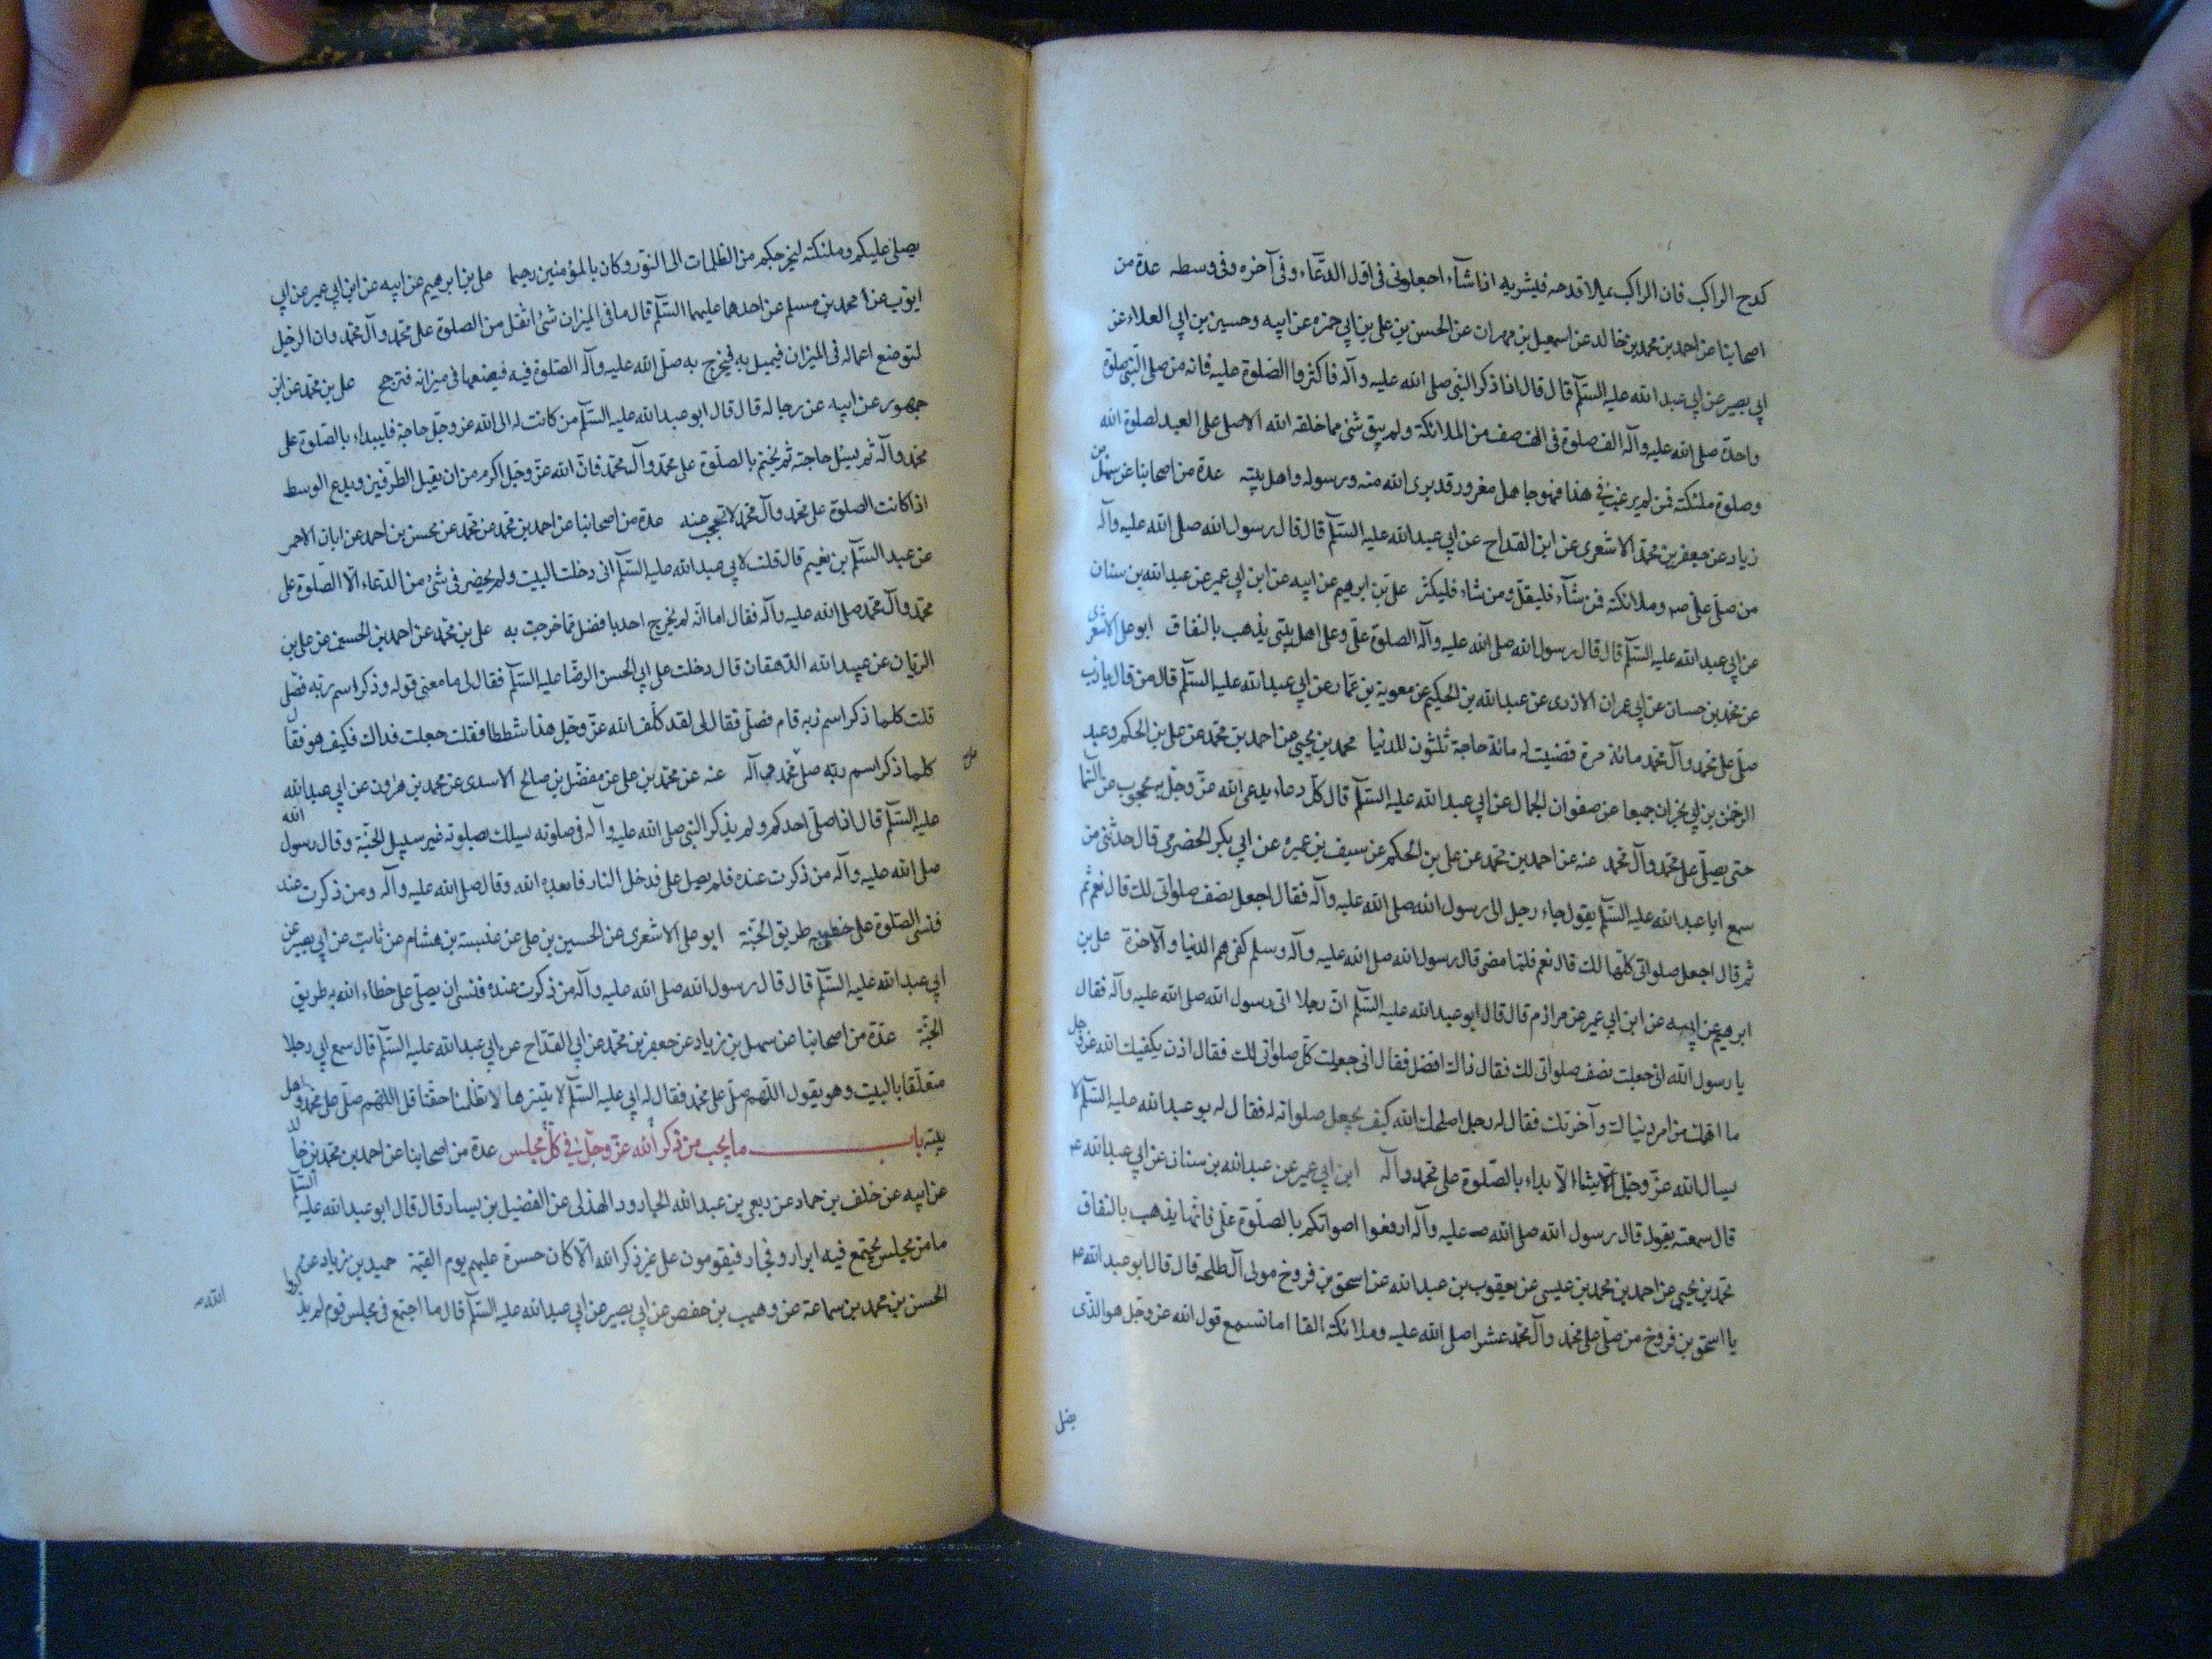 كدح الراكب فان الراكب يملا قدحه فيشربه اذا شآء اجعلونى فى اول الدعّاء وفى آخره وفى وسطه عدة من
اصحابنا عن احمد بن محمد بن خالد عن اسمعيل بن مهران عن الحسن بن على بن ابي حمزه عن ابيه وحسين بن ابي العلاء عن
ابي بصير عن ابي عبد الله عليه السّلم قال قال اذا ذكر النبي صلى الله عليه وآله فاكثروا الصّلوة عليه فانه من صلى النّبي صلوة
واحدة صلى الله عليه وآله الف صلوة فى الف صف من الملائكة ولم يبق شئ مما خلقه الله الا صلى على العبد لصلوة الله
وصلوة ملئكته فمن لم يرغب فى هذا فهو جاهل مغرور قد برى الله منه ورسوله واهل بيته عدة من اصحابنا عن سهل بن
زياد عن جعفر بن محمّد الاشعرى عن ابن القداح عن ابي عبد الله عليه السّلم قال قال رسول الله صلى الله عليه وآله
من صلّى علىّ صلى الله وملائكته فمن شآء فليقلّ ومن شاء فليكثر على بن ابرهيم عن ابيه عن ابن ابي عمير عن عبد الله بن سنان
عن ابي عبد الله عليه السّلم قال قال رسول الله صلى الله عليه وآله الصلوة علّى وعلى اهل بيتى يذهب بالنفاق ابو على الاشعرى
عن محمّد بن حسان عن ابي عمران الازدى عن عبد الله بن الحكم عن معوية بن عمّار عن ابي عبد الله عليه السّلم قال من قال يا ربّ
صلّ على محمّد وآل محمّد مائة مرة قضيت له مائة حاجة ثلثون للدنيا محمد بن يحيى عن احمد بن محمّد عن على بن الحكم وعبد
الرحمن بن ابي نجران جميعا عن صفوان الجمال عن ابي عبد الله عليه السّلم قال كلّ دعاء يدعى الله عزّ وجلّ به محجوب عن السّما
حتى يصلّى على محمّد وآل محمّد عنه عن احمد بن محمّد عن على بن الحكم عن سيف بن عميره عن ابي بكر الحضرمى قال حدّثنى من
سمع ابا عبد الله عليه السّلم يقول جاء رجل الى رسول الله صلى الله عليه وآله فقال اجعل نصف صلواتى لك قال نعم ثم
ثم قال اجعل صلواتى كلّها لك قال نعم فلمّا مضى قال رسول الله صلى الله عليه وآله وسلم كفى هم الدنيا والآخرة على بن
ابرهيم عن ابيه عن ابن ابي عمير عن مرازم قال قال ابو عبد الله عليه السّلم انّ رجلا اتى رسول الله صلى الله عليه وآله فقال
يا رسول الله انى جعلت نصف صلواتى لك فقال ذاك افضل فقال انى جعلت كلّ صلواتى لك فقال اذن يكفيك الله عزّ وجل
ما اهمّك من امر دنياك وآخرتك فقال له رجل اصلحك الله كيف يجعل صلواته له فقال له بو عبد الله عليه السّلم لا
يسال الله عزّ وجلّ الا بدأ بالصّلوة على محمّد وآله ابن ابي عمير عن عبد الله بن سنان عن ابي عبد الله ع
قال سمعته يقول قال رسول الله صلى الله عليه وآله ارفعوا اصواتكم بالصلّوة علّى فانّها يذهب بالنفاق
محمّد بن يحيى عن احمد بن محمد بن عيسى عن يعقوب بن عبد الله عن اسحق بن فروخ مولى آل طلحه قال قال ابو عبد الله ع
يا اسحق بن فروخ من صلّى على محمّد وآل محمّد عشرا صلى الله عليه وملائكته الفا اما تسمع قول الله عز وجل هو الذى
يصل
يصلى عليكم وملئكته ليخرجكم من الظلمات الى النوّر وكان بالمؤمنين رحيما على بن ابرهيم عن ابيه عن ابن ابي عمير عن ابي
ايوّب عن محمد بن مسلم عن احدهما عليهما السّلم قال ما فى الميزان شئ اثقل من الصلوة على محمّد وآل محمّد وان الرجل
لتوضع اعماله فى الميزان فيميل به فيخرج به صلّى الله عليه وآله الصّلوة فيه فيضعها فى ميزانه فترجح على بن محمّد عن ابن
جمهور عن ابيه عن رجاله قال قال ابو عبد الله عليه السّلم من كانت له الى الله عز وجلّ حاجة فليبداء بالصّلوة على
محمّد وآله ثم يسئل حاجته ثم يختم بالصلّوة على محمّد وآل محمّد فانّ الله عزّ وجلّ اكرم من ان يقبل الطرفين ويدع الوسط
اذا كانت الصلوة على محمّد وآل محمّد لا تحجب عنه عدة من اصحابنا عن احمد بن محمّد عن محسن بن احمد عن ابان الاحمر
عن عبد السّلم بن نعيم قال قلت لابي عبد الله عليه السّلم انى دخلت البيت ولم يحضر فى شئ من الدعّاء الّا الصّلوة على
محمّد وآل محمّد صلى الله عليه وآله فقال اما انّه لم يخرج احد بافضل ممّا خرجت به على بن محمّد عن احمد بن الحسين عن على بن
الريّان عن عبيد الله الدّهقان قال دخلت على ابي الحسن الرضّا عليه السّلم فقال لى ما معنى قوله وذكر اسم ربّه فصّلى
قلت كلما ذكر اسم ربه قام فصلّى فقال لى لقد كلّف الله عزّ وجلّ هذا شططا فقلت جعلت فداك فكيف هو فقال
كلما ذكر اسم ربّه صلّى على محمّد وآله عنه عن محمّد بن على عن مفضّل بن صالح الاسدى عن محمد بن هرون عن ابي عبد الله
عليه السّلم قال اذا صلّى احدكم ولم يذكر النبى صلى الله عليه وآله فى صلوته يسلك بصلوته غير سبيل الجنّة وقال رسول الله
صلى الله عليه وآله من ذكرت عنده فلم يصل على فدخل النار فابعده الله وقال صلى الله عليه وآله ومن ذكرت عند
فنسى الصّلوة على خطى به طريق الجنّة ابو على الاشعرى عن الحسين بن على عن عنبسة بن هشام عن ثابت عن ابي بصير عن
ابي عبد الله عليه السّلم قال قال رسول الله صلى الله عليه وآله من ذكرت عنده فنسى ان يصلّى على خطاء الله به طريق
الجنّة عدّة من اصحابنا عن سهل بن زياد عن جعفر بن محمّد عن ابي القدّاح عن ابي عبد الله عليه السّلم قال سمع ابي رجلا
متعلّقا بالبيت وهو يقول اللّهم صلّ على محمّد فقال له ابي عليه السّلم لا تبترها لا تظلمنا حقّنا قل اللهّم صلّ على محمّد واهل
بيته باب ما يجب من ذكر الله عزّ وجلّ فى كلّ مجلس عدة من اصحابنا عن احمد بن محمّد بن خالد
عن ابيه عن خلف بن حماد عن ربعى بن عبد الله الجارود الهذلى عن الفضيل بن يسار قال قال ابو عبد الله عليه السّلم
ما من مجلس يجتمع فيه ابرار وفجار فيقومون على غير ذكر الله الّا كان حسرة عليهم يوم القيمة حميد بن زياد عن
الحسن بن محمد بن سماعة عن وهيب بن حفص عن ابي بصير عن ابي عبد الله عليه السّلم قال ما اجتمع فى مجلس قوم لم يذكروا
الله